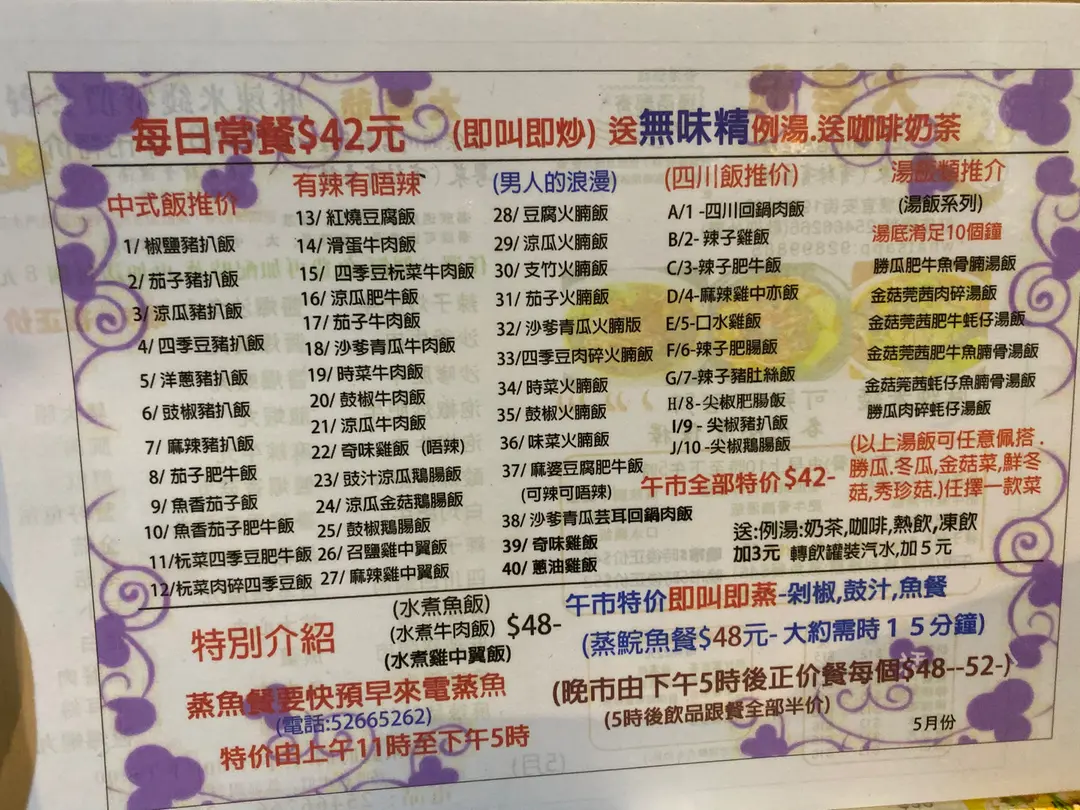 每日常餐$42元 (即叫即炒) 送無味精例湯.送咖啡奶茶
中式飯推价
1/ 椒鹽豬扒飯
2/ 茄子豬扒飯
3/ 涼瓜豬扒飯
4/ 四季豆豬扒飯
5/ 洋蔥豬扒飯
6/ 豉椒豬扒飯
7/ 麻辣豬扒飯
8/ 茄子肥牛飯
9/ 魚香茄子飯
10/ 魚香茄子肥牛飯
11/杬菜四季豆肥牛飯
12/杬菜肉碎四季豆飯
有辣有唔辣
13/ 紅燒豆腐飯
14/ 滑蛋牛肉飯
15/ 四季豆杬菜牛肉飯
16/ 涼瓜肥牛飯
17/ 茄子牛肉飯
18/ 沙爹青瓜牛肉飯
19/ 時菜牛肉飯
20/ 鼓椒牛肉飯
21/ 涼瓜牛肉飯
22/ 奇味雞飯 (唔辣)
23/ 豉汁涼瓜鵝腸飯
24/ 涼瓜金菇鵝腸飯
25/ 鼓椒鵝腸飯
26/ 召鹽雞中翼飯
27/ 麻辣雞中翼飯
(男人的浪漫)
28/ 豆腐火腩飯
29/ 涼瓜火腩飯
30/ 支竹火腩飯
31/ 茄子火腩飯
32/ 沙爹青瓜火腩版
33/四季豆肉碎火腩飯
34/ 時菜火腩飯
35/ 鼓椒火腩飯
36/ 味菜火腩飯
37/ 麻婆豆腐肥牛飯
(可辣可唔辣)
38/ 沙爹青瓜芸耳回鍋肉飯
39/ 奇味雞飯
40/ 蔥油雞飯
(四川飯推价)
A/1 -四川回鍋肉飯
B/2- 辣子雞飯
C/3-辣子肥牛飯
D/4-麻辣雞中亦飯
E/5-口水雞飯
F/6-辣子肥腸飯
G/7-辣子豬肚絲飯
H/8-尖椒肥腸飯
I/9 - 尖椒豬扒飯
J/10 -尖椒鵝腸飯
湯飯類推介
(湯飯系列)
湯底淆足10個鐘
勝瓜肥牛魚骨腩湯飯
金菇莞茜肉碎湯飯
金菇莞茜肥牛蚝仔湯飯
金菇莞茜肥牛魚腩骨湯飯
金菇莞茜蚝仔魚腩骨湯飯
勝瓜肉碎蚝仔湯飯
(以上湯飯可任意佩搭.
勝瓜.冬瓜,金菇菜,鮮冬
菇,秀珍菇.)任擇一款菜
午市全部特价$42-
送:例湯:奶茶,咖啡,熱飲,凍飲
加3元 轉飲罐裝汽水,加5元
特別介紹
(水煮魚飯)
(水煮牛肉飯) $48-
(水煮雞中翼飯)
蒸魚餐要快預早來電蒸魚
(電話:52665262)
特价由上午11時至下午5時
午市特价即叫即蒸-剁椒,鼓汁,魚餐
(蒸鯇魚餐$48元- 大約需時15分鐘)
(晚市由下午5時後正价餐每個$48--52-)
(5時後飲品跟餐全部半价)
5月份